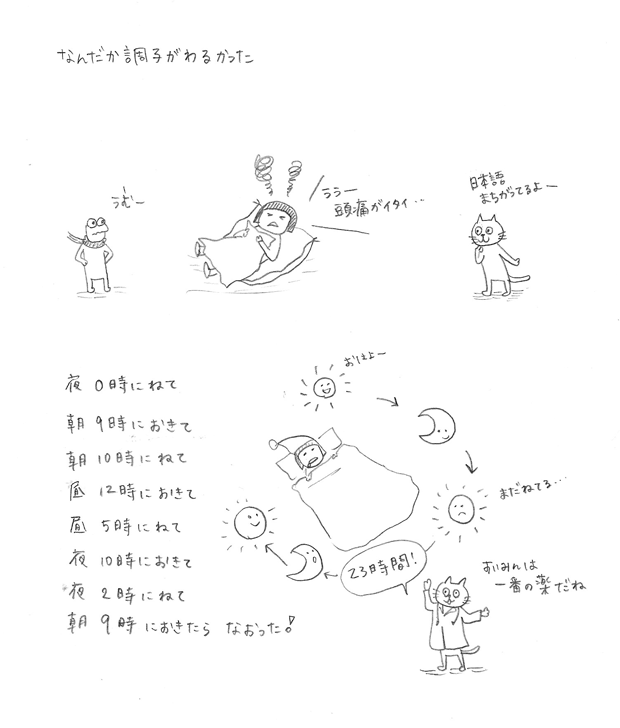 なんだか調子がわるかった
うむー
ううー
頭痛がイタイ…
日本語
まちがってるよー
夜 0時にねて
朝 9時におきて
朝 10時にねて
昼 12時におきて
昼 5時にねて
夜 10時におきて
夜 2時にねて
朝 9時におきたら なおった!
おはよー
まだねてる…
23時間!
すいみんは
一番の薬だね